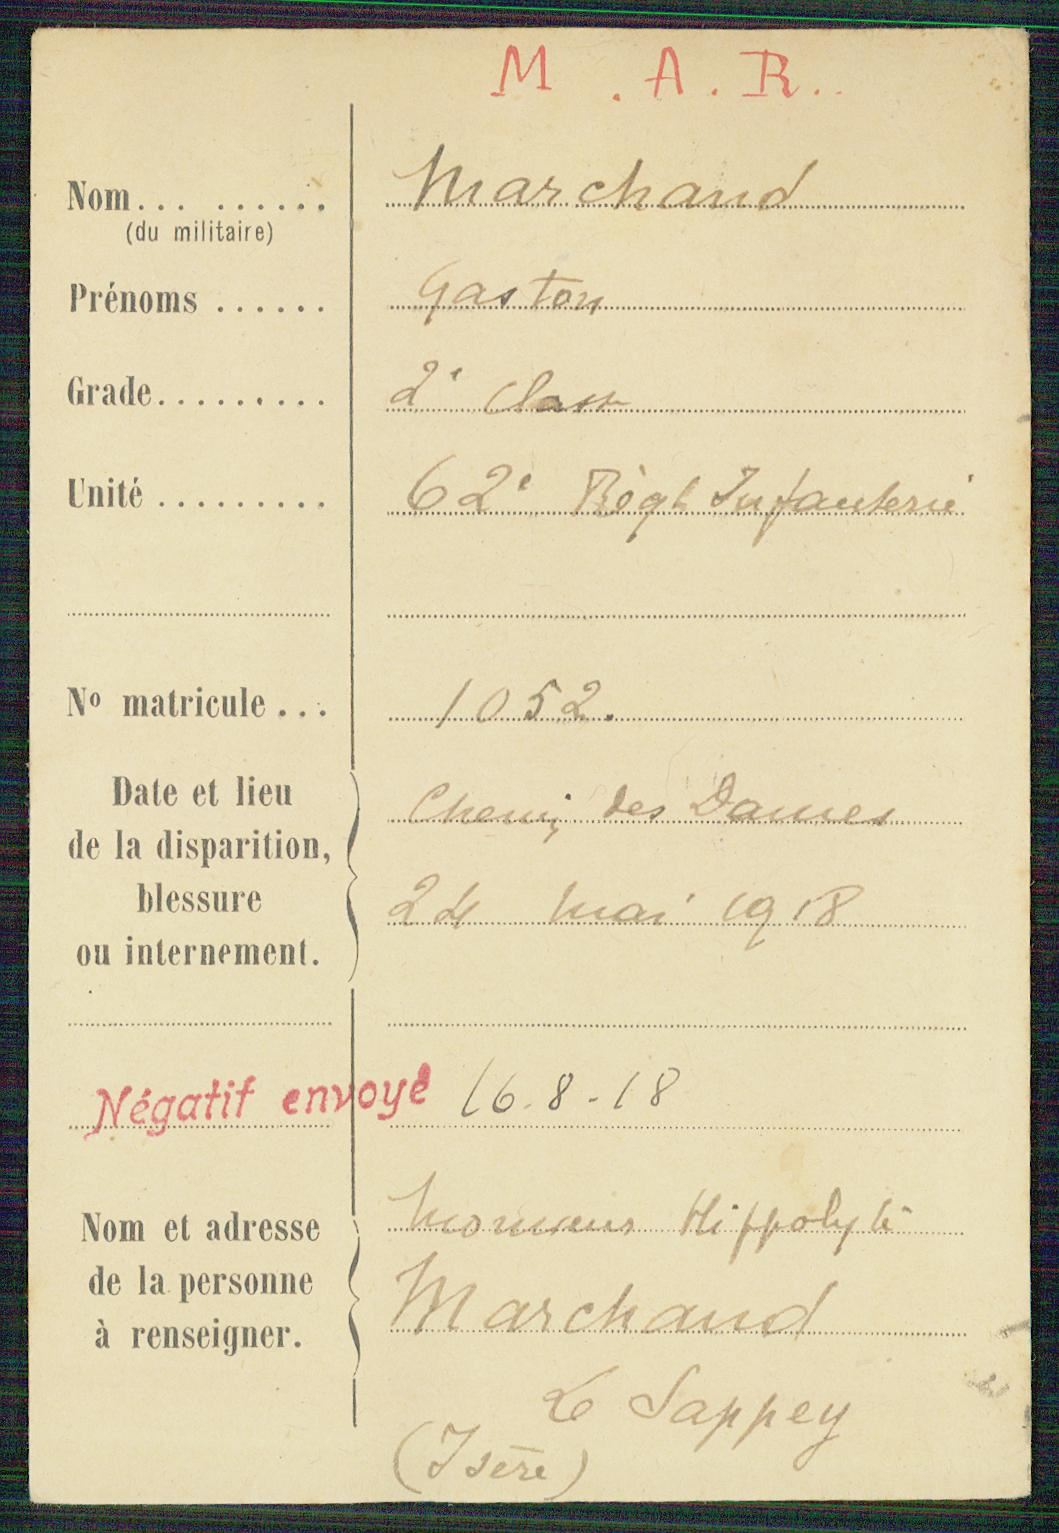 M . A . R . .
Nom... ...... Marchand
(du militaire)
Prénoms ...... Gaston
Grade......... 2e Classe
Unité ......... 62e Règt Infanterie
No matricule ... 1052.
Date et lieu
de la disparition,
blessure
ou internement.
Chemin des Dames
24 mai 1918
Négatif envoyé 16-8-18
Nom et adresse
de la personne
à renseigner.
Monsieur Hippolyte
Marchand
Le Sappey
(Isère)